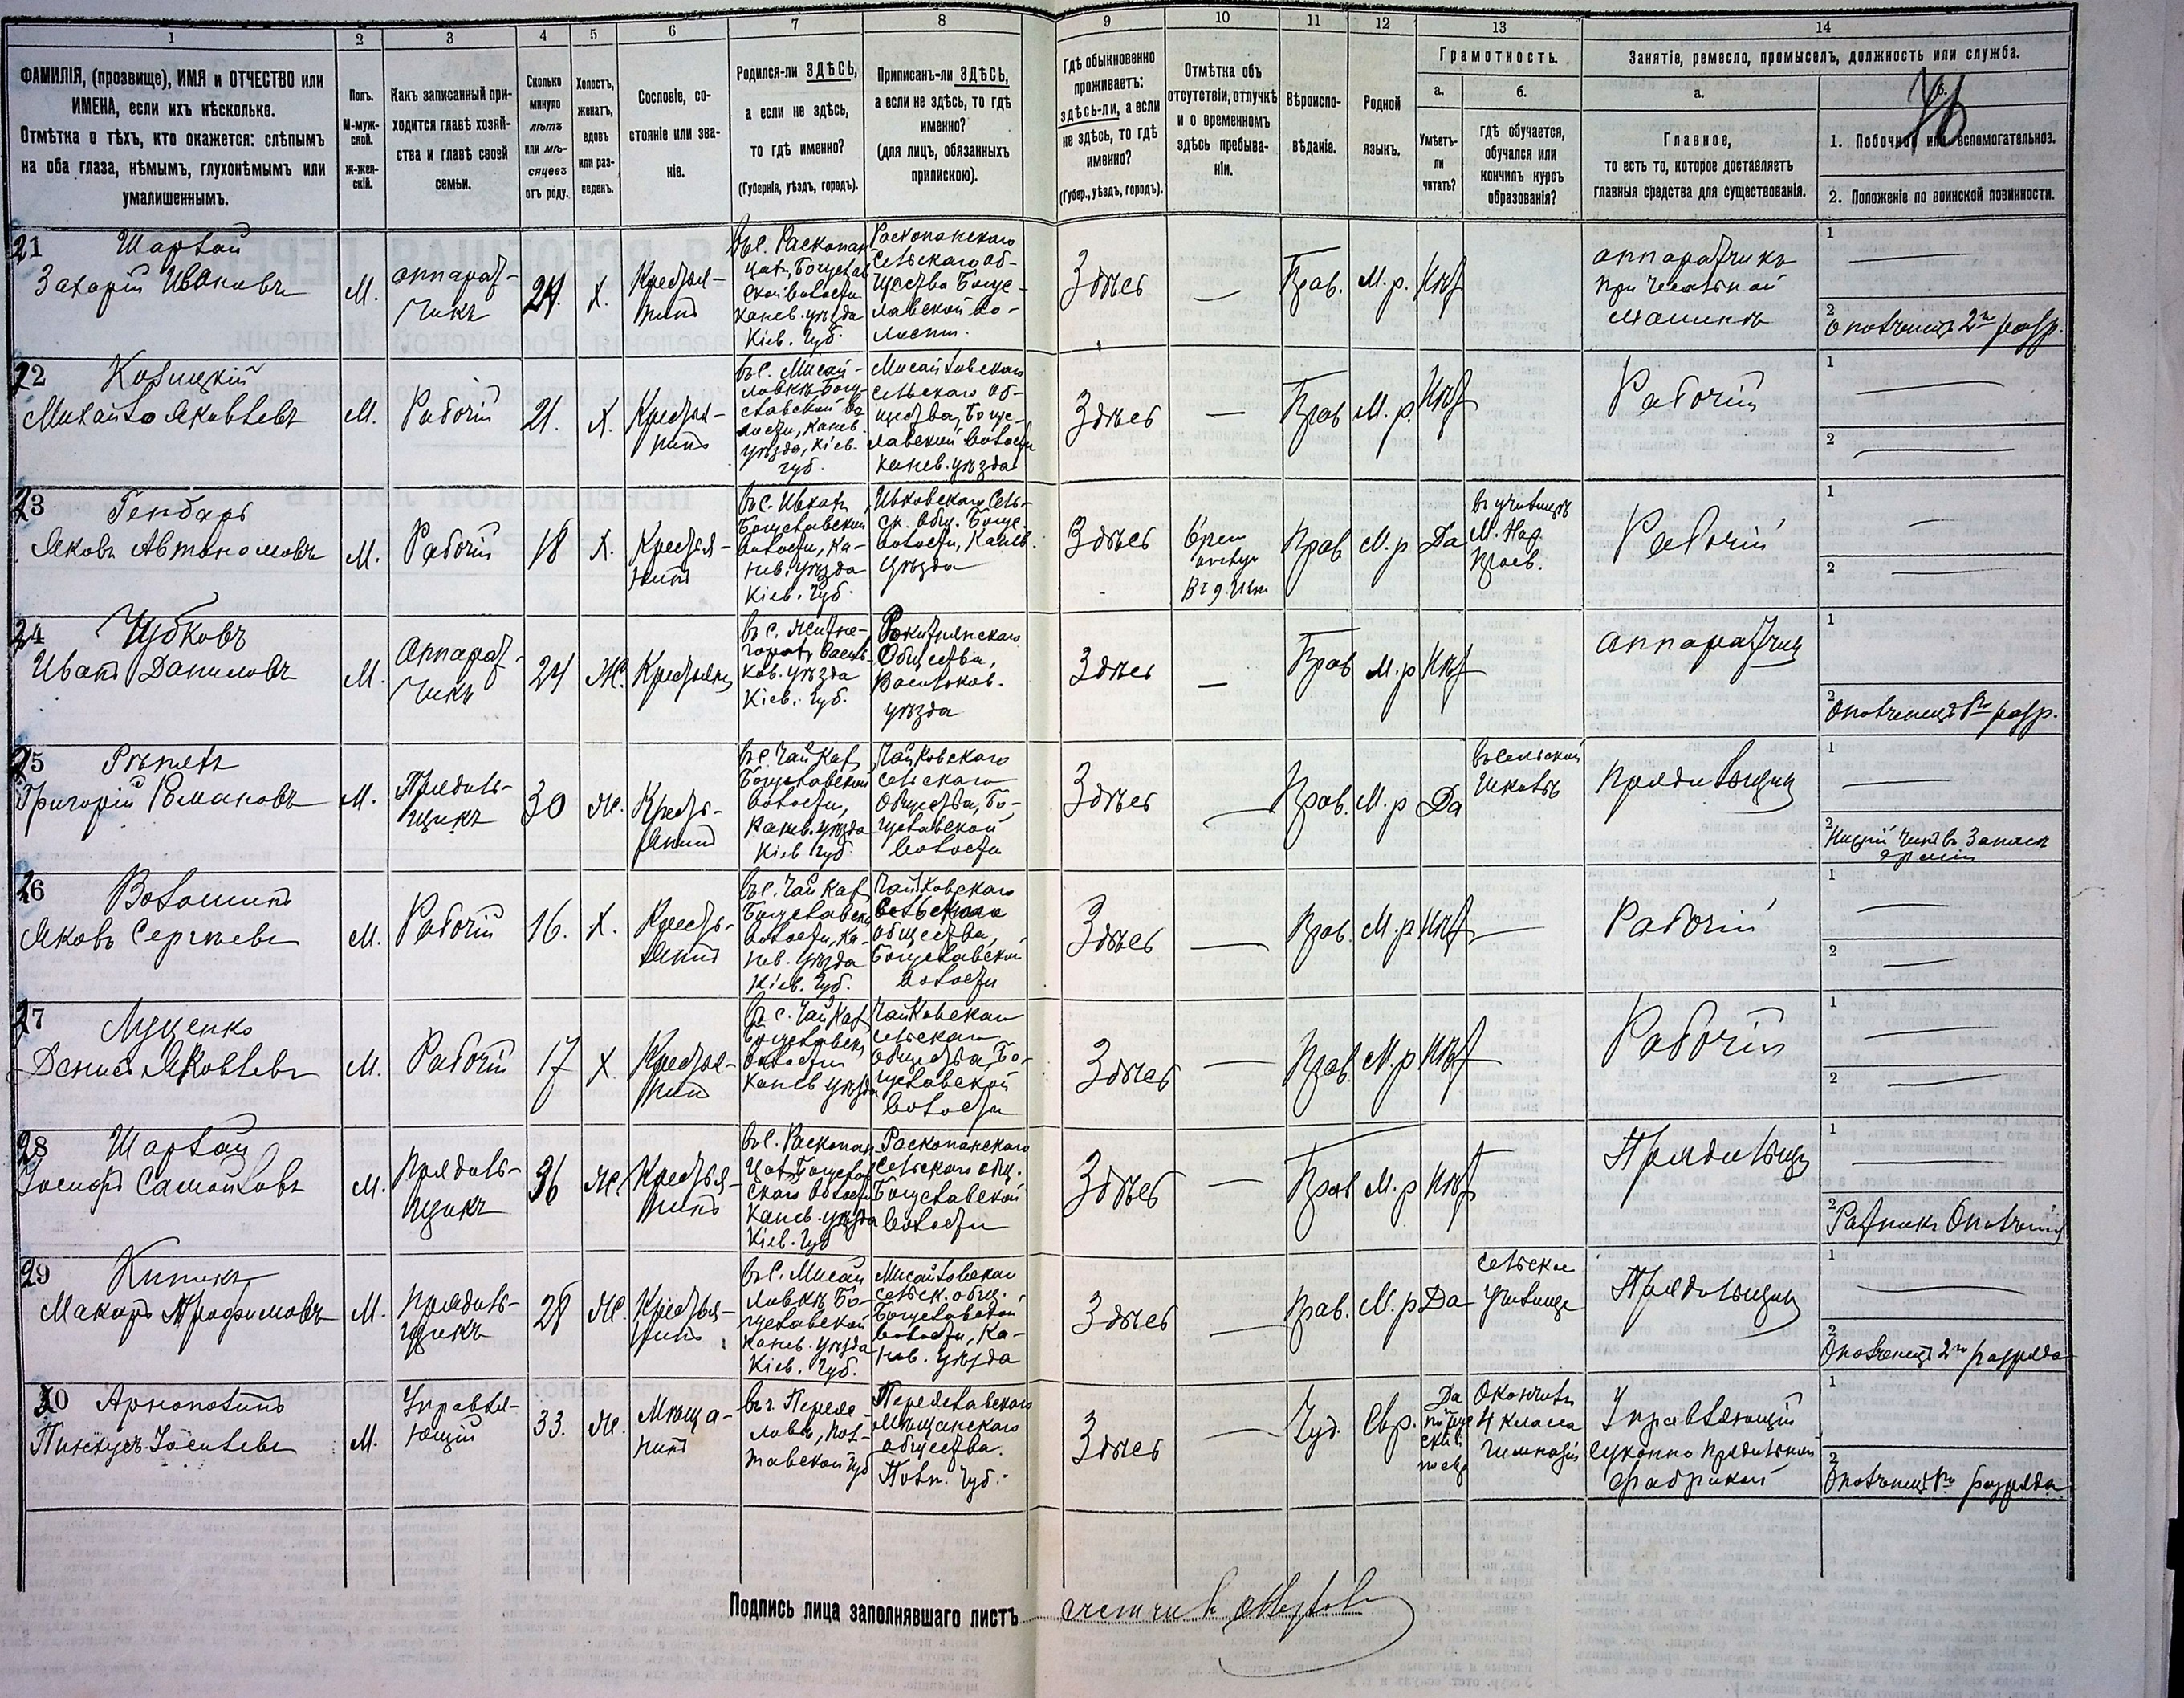 1 2 3 4 5 6 7 8 9 10 11 12 13 14
ФАМИЛІЯ, (прозвище), ИМЯ и ОТЧЕСТВО или
ИМЕНА, если ихъ нѣсколько.
Отмѣтка о тѣхъ, кто окажется: слѣпымъ
на оба глаза, нѣмымъ, глухонѣмымъ или
умалишеннымъ.
Полъ.
М-муж-
ской.
ж-жен-
скій.
Какъ записанный при-
ходится главѣ хозяй-
ства и главѣ своей
семьи.
Сколько
минуло
лѣтъ
или мѣ-
сяцевъ
отъ роду.
Холостъ,
женатъ,
вдовъ
или раз-
веденъ.
Сословіе, со-
стояніе или зва-
ніе.
Родился-ли ЗДѢСЬ,
а если не здѣсь,
то гдѣ именно?
(Губернія, уѣздъ, городъ).
Приписанъ-ли ЗДѢСЬ,
а если не здѣсь, то гдѣ
именно?
(для лицъ, обязанныхъ
припискою).
Гдѣ обыкновенно
проживаетъ:
здѣсь-ли, а если
не здѣсь, то гдѣ
именно?
(Губер., уѣздъ, городъ).
Отмѣтка объ
отсутствіи, отлучкѣ
и о временномъ
здѣсь пребыва-
ніи.
Вѣроиспо-
вѣданіе.
Родной
языкъ.
Грамотность.
а.
Умѣетъ-
ли
читать?
б.
гдѣ обучается,
обучался или
кончилъ курсъ
образованія?
Занятіе, ремесло, промыселъ, должность или служба.
а.
Главное,
то есть то, которое доставляетъ
главныя средства для существованія.
1. Побочное или вспомогательное.
2. Положеніе по воинской повинности.
21
Захарій Ивановъ
М.
аппарат-
чикъ
24.
Х.
Крестья-
нинъ
въ с. Раскопан
Канев. уѣзда
Кіев. Губ.
Раскопанскаго
Сельскаго об-
щества Богу-
славской во-
лости.
Здѣсь
—
Прав.
М. р.
Нѣт
аппаратчикъ
при Чесальной
машинѣ
1
—
2
Ополченецъ 2го разр.
22
Михайло Яковлевъ
М.
Рабочій
21.
Х.
Крестья-
нинъ
въ с. Мисай-
ловкѣ Богу-
славской во-
лости, Канев.
уѣзда, Кіев.
губ.
Мисайловскаго
сельскаго об-
щества, Богу-
славской волости
Канев. уѣзда
Здѣсь
—
Прав
М. р.
Нѣт
Рабочій
1
—
2
—
23
Яковъ Автономовъ
М.
Рабочій
18
Х.
Крестья-
нинъ
Богуславской
волости, Ка-
нев. уѣзда
Кіев. Губ.
Ск. Общ. Богус.
волости, Канев.
уѣзда
Здѣсь
Прав
М. р
Да
въ училищѣ
М. Нар.
Просв.
Рабочій
1
—
2
—
24
Чубковъ
Иванъ Даниловъ
М.
Аппарат-
чикъ
24
Ж.
Крестьянин
ков. уѣзда
Кіев. Губ.
Рокитянскаго
Общества,
Васильков.
уѣзда
Здѣсь
—
Прав
М. р
Нѣт
аппаратчик
1
2
Ополченецъ 1го разр.
25
Григорій Романовъ
М.
Прядиль-
щикъ
30
Ж.
Кресть-
янинъ
въ с. Чайках
Богуславской
волости,
Канев. уѣзда
Кіев Губ.
Чайковскаго
сельскаго
Общества, Бо-
гуславской
волости
Здѣсь
—
Прав.
М. р
Да
въ сельской
школѣ
прядильщик
1
—
2
Нисшій Чинъ въ Запасѣ
арміи
26
Волошинъ
Яковъ Сергѣевъ
М.
Рабочій
16.
Х.
Кресть-
янинъ
въ с. Чайках
Богуславск
волости, Ка-
нев. Уѣзда
Кіев. Губ.
Чайковскаго
Сельскаго
общества,
Богуславской
волости
Здѣсь
—
Прав.
М. р
Нѣт
—
Рабочій
1
—
2
—
27
Луценко
Денисъ Яковлевъ
М.
Рабочій
17
Х
Крестья-
нинъ
въ с. Чайках
Богуславск
волости
Канев уѣзда
Чайковскаго
сельскаго
общества, Бо-
гуславской
волости
Здѣсь
—
Прав.
М. р
Нѣт
Рабочій
1
—
2
—
28
Іосифъ Самойловъ
М.
прядиль-
щикъ
36
Ж.
Крестья-
нинъ
въ с. Раскопан
Канев. уѣзда
Кіев. Губ
Раскопанскаго
Сельскаго общ.
Богуславской
волости
Здѣсь
—
Прав
М. р
Нѣт
Прядильщик
1
—
2
Ратникъ Ополченія
29
Макаръ Трофимовъ
М.
прядиль-
щикъ
28
Ж.
Крестья-
нинъ
въ с. Мисай
ловкѣ Бо-
гуславской
Канев. уѣзда
Кіев. Губ.
Мисайловскаго
сельск. общ.
Богуславской
волости, Ка-
нев. уѣзда
Здѣсь
—
Прав.
М. р
Да
сельское
училище
Прядильщик
1
—
2
Ополченецъ 2го разряда
30
Арнополинъ
М.
Управля-
ющій
33.
Ж.
Мѣща-
нинъ
въ г. Перея-
лавѣ, Пол-
тавской Губ
Переяславскаго
Мѣщанскаго
общества.
Полт. Губ.
Здѣсь
—
Іуд.
Евр.
Да
Окончилъ
4 класса
гимназіи
Управляющій
Суконно прядильной
фабрикой
1
2
Ополченецъ 1го разряда
Подпись лица заполнявшаго листъ